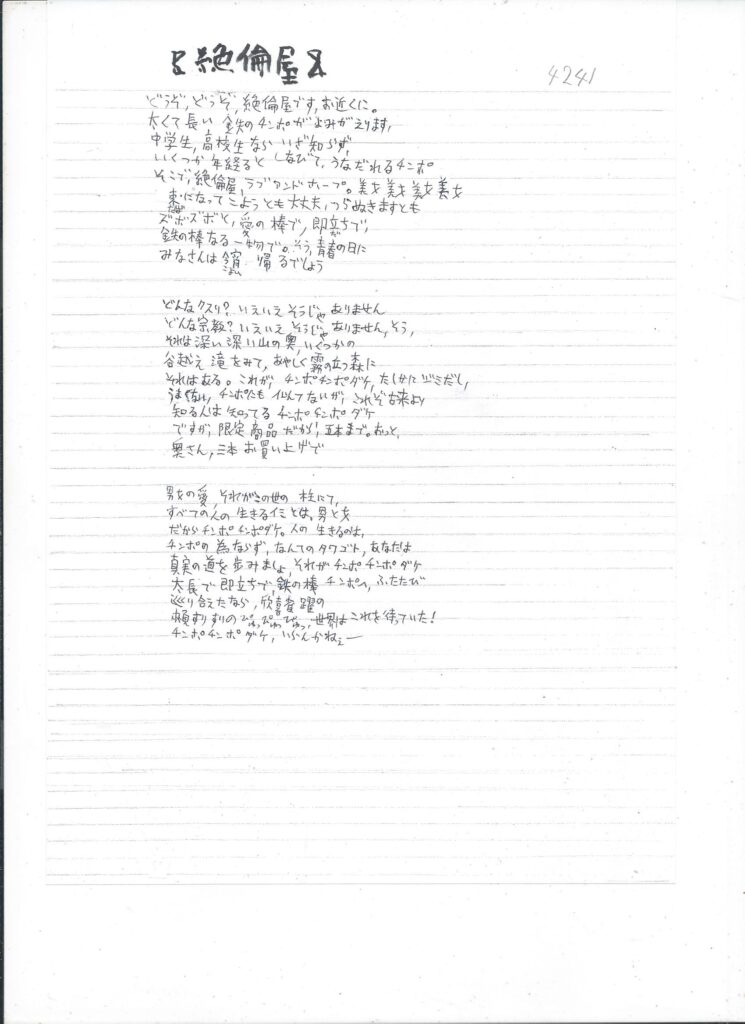 絶倫屋
4241
どうぞ、どうぞ、絶倫屋です、お近くに。
太くて長い、鉄のチンポがよみがえります、
中学生、高校生ならいざ知らず、
いくつか年経ると しなびて、うなだれるチンポ
そこで、絶倫屋、ラブアンドホープ。美女 美女 美女 美女
束になってこようとも大丈夫、つらぬきますとも
たば
ズボズボと、愛の棒で、即立ちで、
鉄の棒なる一物で。そう、青春の日に
みなさんは今宵 帰るでしょう
こよい
どんなクスリ? いえいえ そうじゃ ありません
どんな宗教? いえいえ そうじゃ ありません、そう、
それは深い深い山の奥、いくつかの
谷越え 滝をみて、あやしく霧の立つ森に
それはある。これが、チンポチンポダケ、たしかに
チンポにも 似んてないが、これぞ古来より
知る人は 知ってる チンポチンポダケ
ですが、限定商品だから、五本まで。おっと、
奥さん、三本お買い上げで
男女の愛、それがこの世の 柱にて、
すべての人の 生きるイミとは、男と女
だからチンポチンポダケ。人の 生きるのは、
チンポの為ならず、なんてのタワゴト、あなたは
真実の道を歩みましょ、それがチンポチンポダケ
太長で即立ちで、鉄の棒 チンポへ、ふたたび
巡り合えたなら、欣喜雀躍の
頬すりすりの 世界はこれを待っていた!
チンポチンポダケ、いらんかねぇー